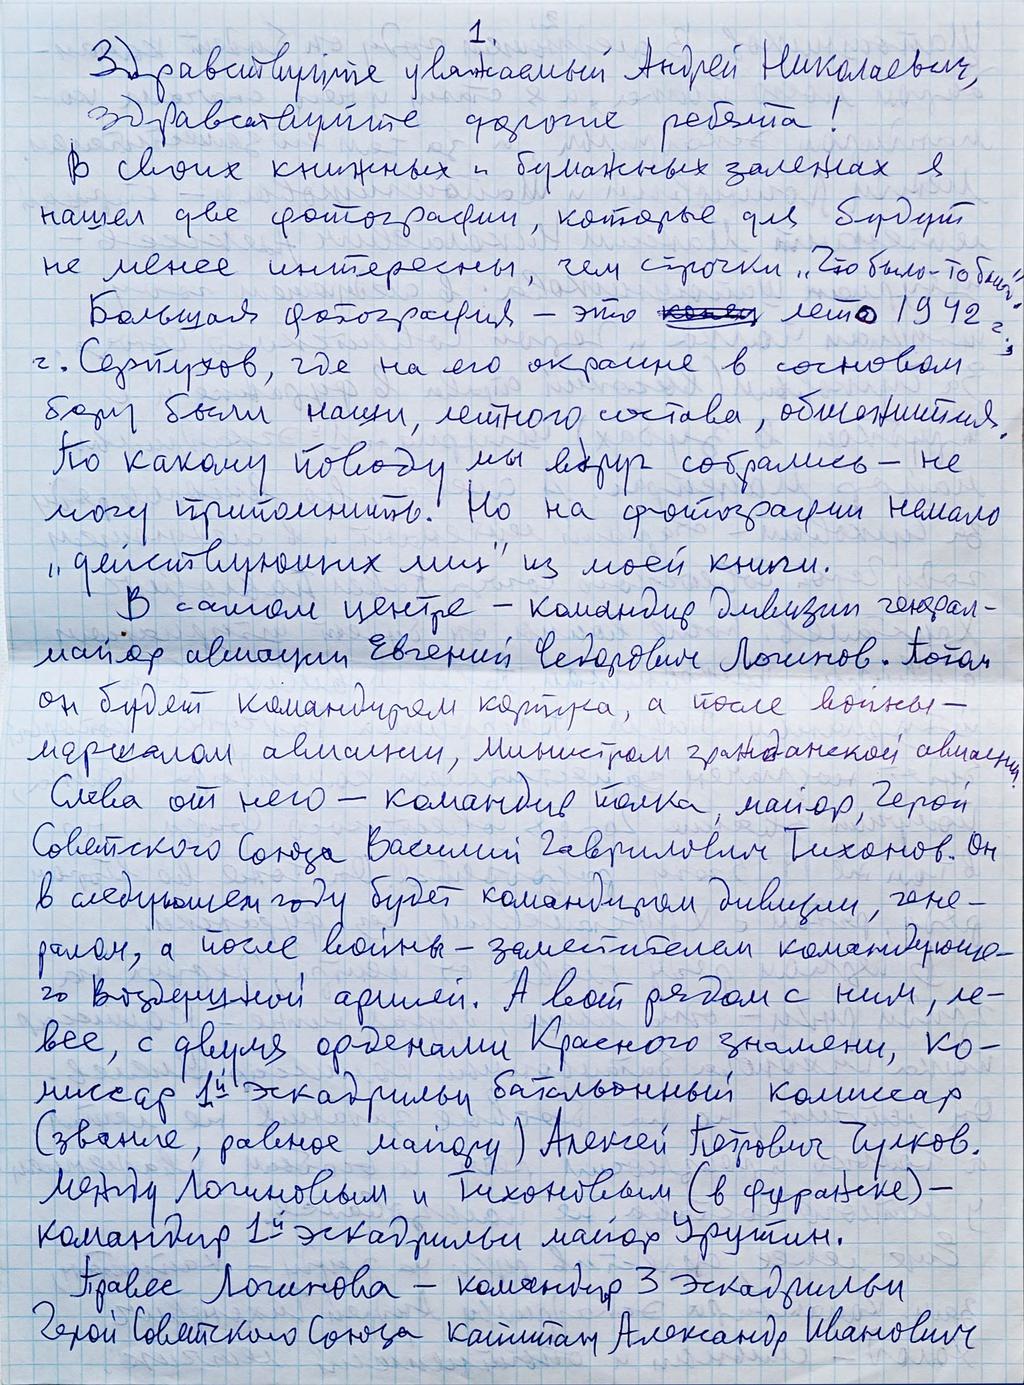 1.
Здравствуйте уважаемый Андрей Николаевич,
Здравствуйте дорогие ребята!
В своих книжных и бумажных залежах я
нашел две фотографии, которые для будут
не менее интересны, чем строчки „Что было-то было".
Большая фотография – это конец лето 1942 г.,
г. Серпухов, где на его окраине в сосновом
бору были наши, летного состава, общежития.
По какому поводу мы вдруг собрались – не
могу припомнить. Но на фотографии немало
„действующих лиц" из моей книги.
В самом центре – командир дивизии генерал-
майор авиации Евгений Федорович Логинов. Потом
он будет командиром корпуса, а после войны –
маршалом авиации, Министром гражданской авиации.
Слева от него – командир полка, майор, Герой
Советского Союза Василий Гаврилович Тихонов. Он
в следующем году будет командиром дивизии, гене-
ралом, а после войны – заместителем командующе-
го Воздушной армией. А вот рядом с ним, ле-
вее, с двумя орденами Красного знамени, ко-
миссар 1й эскадрильи батальонный комиссар
(звание, равное майору) Алексей Петрович Чулков.
Между Логиновым и Тихоновым (в фуражке) –
командир 1й эскадрильи майор Урутин.
Правее Логинова – командир 3 эскадрильи
Герой Советского Союза капитан Александр Иванович